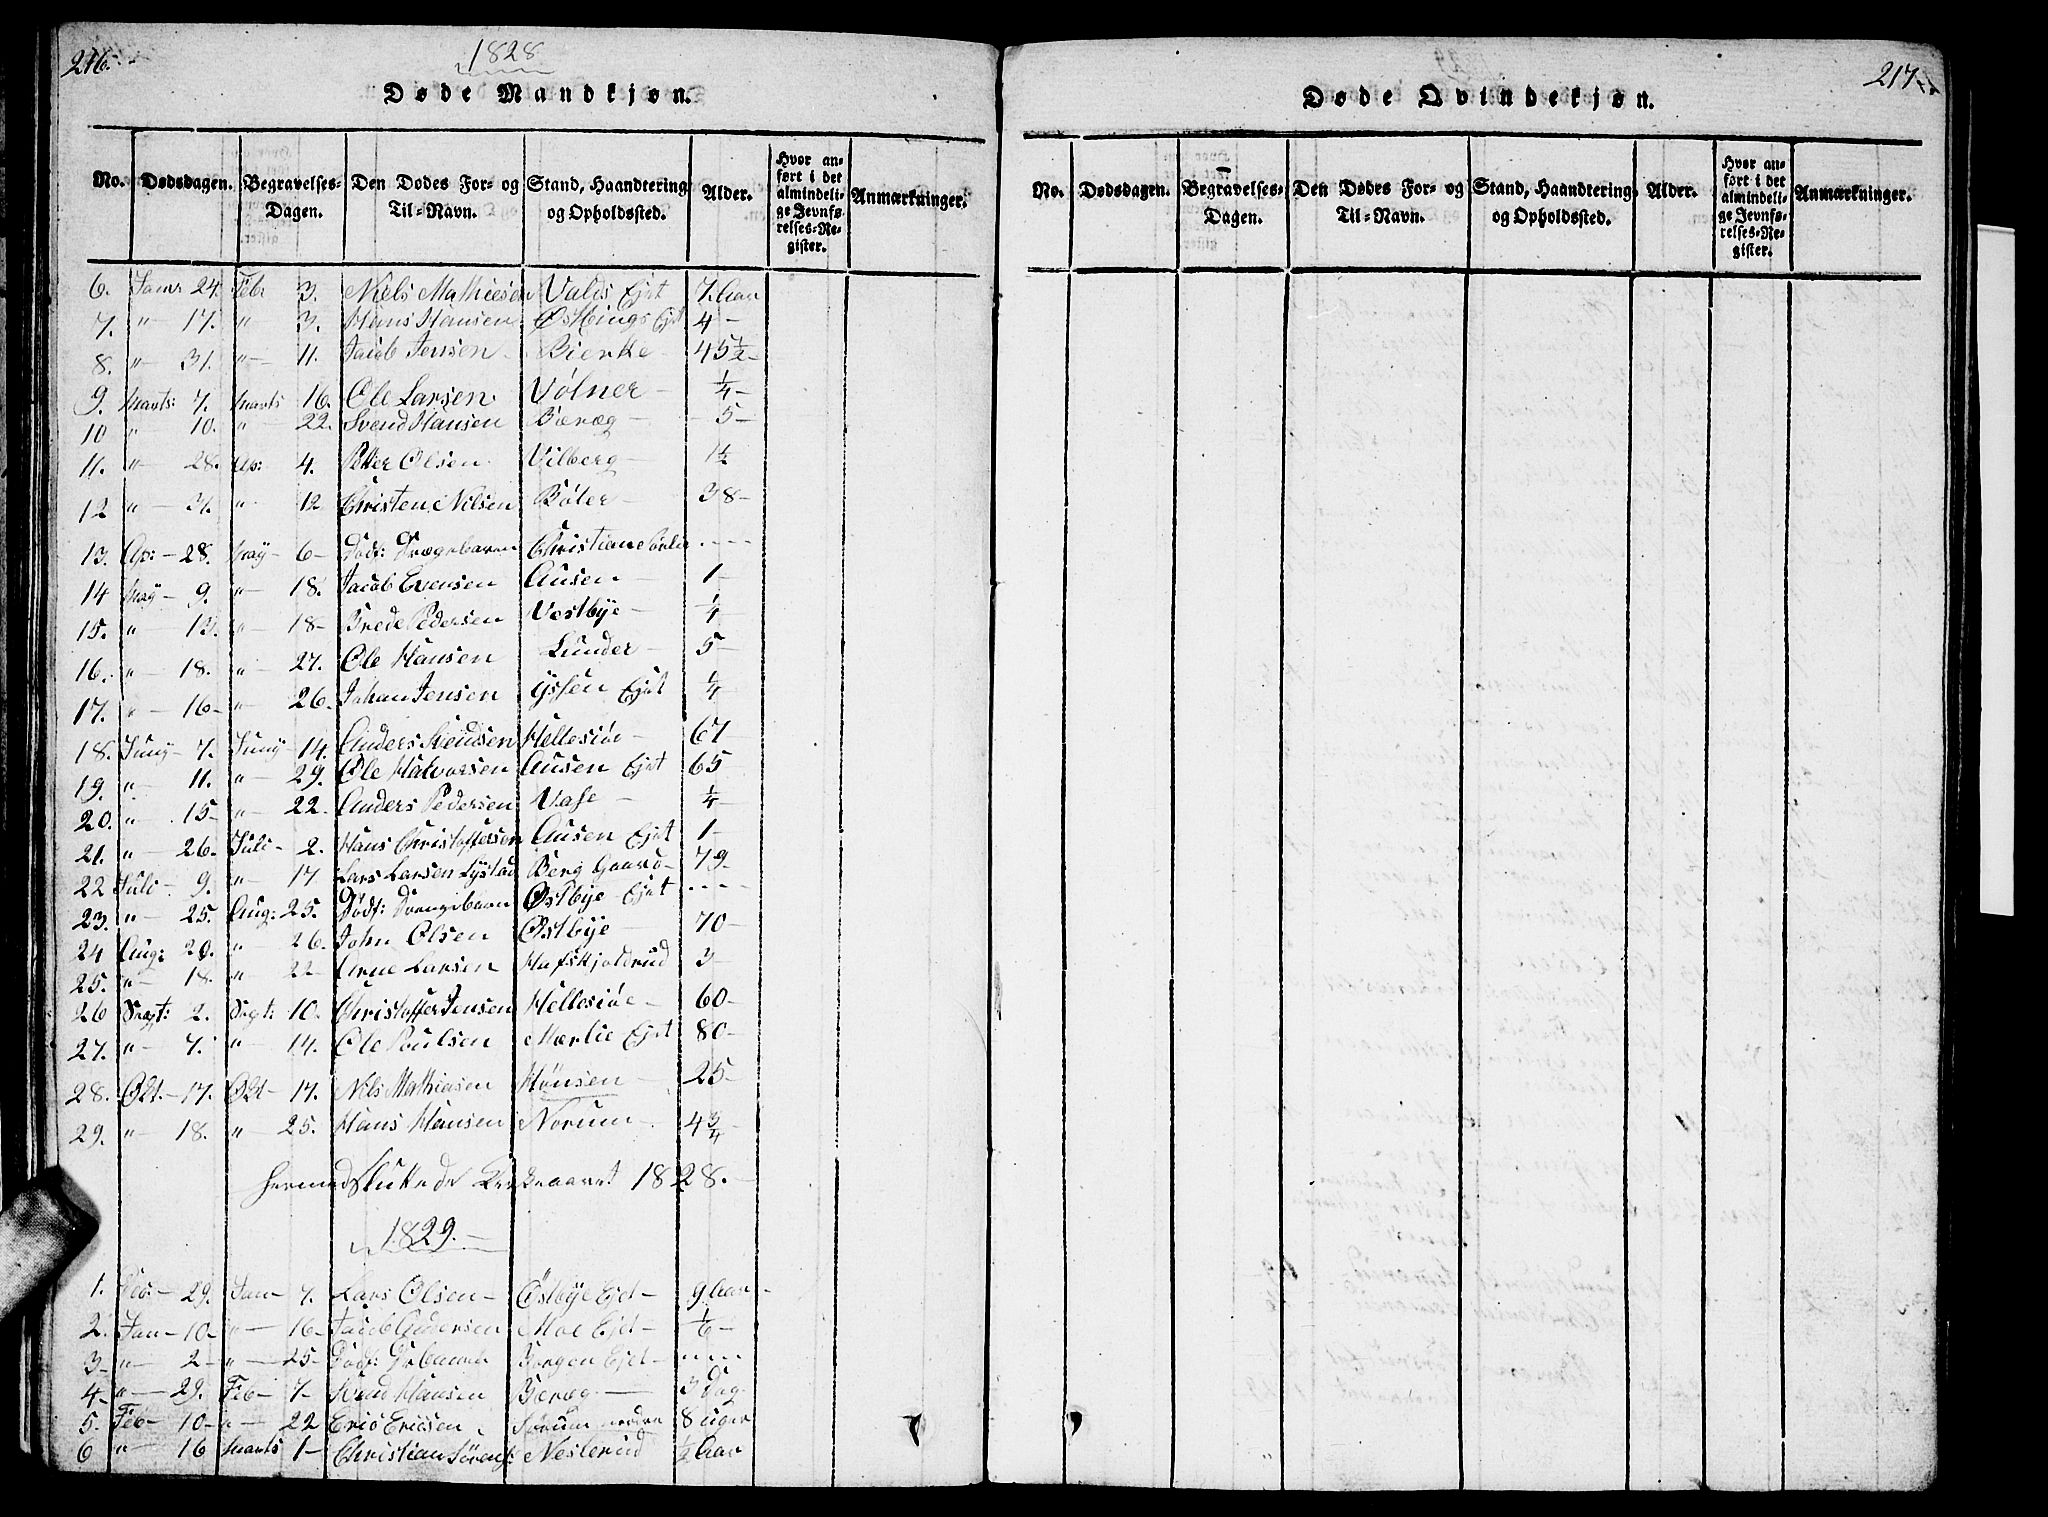 216.
1828
Døde Mandkjøn.
No. Dødsdagen. Begravelses-Dagen. Den Dødes For- og Til-Navn. Stand, Haandtering og Opholdssted. Alder. Hvor anført i det almindelige Jevnførelses-Register. Anmærkninger.
6. Janr 24. Febr 3. Niels Mathiesen Valis Ejet 7 Aar
7. " — 17. " 3. Hans Hansen Østbings Ejet 4 —
8. " — 31. " — 11. Jacob Jensen Bierke — 45 1/2 —
9. Marts: 7. Marts 16. Ole Larsen. Vølner — 1/4 —
10 " — 10. " — 22. Svend Hansen Bæræg — 5 —
11. " — 28. Ap: 4. Peter Olsen Vilberg — 1 1/2
12 " — 31. " 12 Christen Nilsen Bøler — 38 —
13. Ap: — 28. May — 6 — Dødf: Drægebarn Christian
14 May — 9. " — 18. Jacob Evensen Ausen — 1 —
15. " — 13. " — 18 — Brede Pedersen Vestbye — 1/4 —
16. " — 18. " — 27. Ole Hansen Lunder — 5 —
17. " — 16 — " — 26. Johan Jensen Ejet 1/4 —
18. Juny — 7. Juny — 14. Anders Svendsen Hellesiøe — 67
19. " — 11. " — 29. Ole Halvorsen Ausen Ejet 65
20. " — 15 — " — 22. Anders Pedersen Vase — 1/4 —
21. " — 26. Juli — 2. Hans Christoffersen Ausen Ejet 1 —
22 Juli — 9. " — 17 Lars Larsen Lystad Berg Gaard — 79 —
23. " — 25. Aug: 25. Dødf: Drengebarn Østbye Ejet
24 Aug: 20. " — 26. John Olsen Østbye — 70 —
25. " — 18. " — 22 — Arne Larsen Hafskjoldrud 3 —
26 Sept: 2. Sept: 10. Christoffer Jensen Hellesiøe — 60 —
27. " — 7. " — 14. Ole Poulsen Mærlie Ejet 80 —
28. Oct. — 17. Oct — 17. Nils Mathiasen Hønsen — 25 —
29. " — 18. " — 25. Hans Hansen Norum — 4 3/4 —
Hermed Sluttede Kirkeaaret 1828. —
1829. —
1. 29. Jan — 7. Lars Olsen — Østbye Ejet — 9 Aar —
2. Jan — 10 — " — 16 — Jacob Andersen Moe Ejet — 1/6 —
3 — " — 2 — " — 25 — Dødf: Borgen Ejet —
4 — " — 29. Feb — 7 — Knud Hansen Bæræg — 3 Dag
5. Feb — 10 — " — 22 Eric Ericsen Sørum nedre 8 uger
6 " — 16 Marts 1 — Christian Sørens: Neslerud 1/2 Aar
217.
Døde Qvindekjøn.
No. Dødsdagen. Begravelses-Dagen. Den Dødes For- og Til-Navn. Stand, Haandtering og Opholdssted. Alder. Hvor anført i det almindelige Jevnførelses-Register. Anmærkninger.